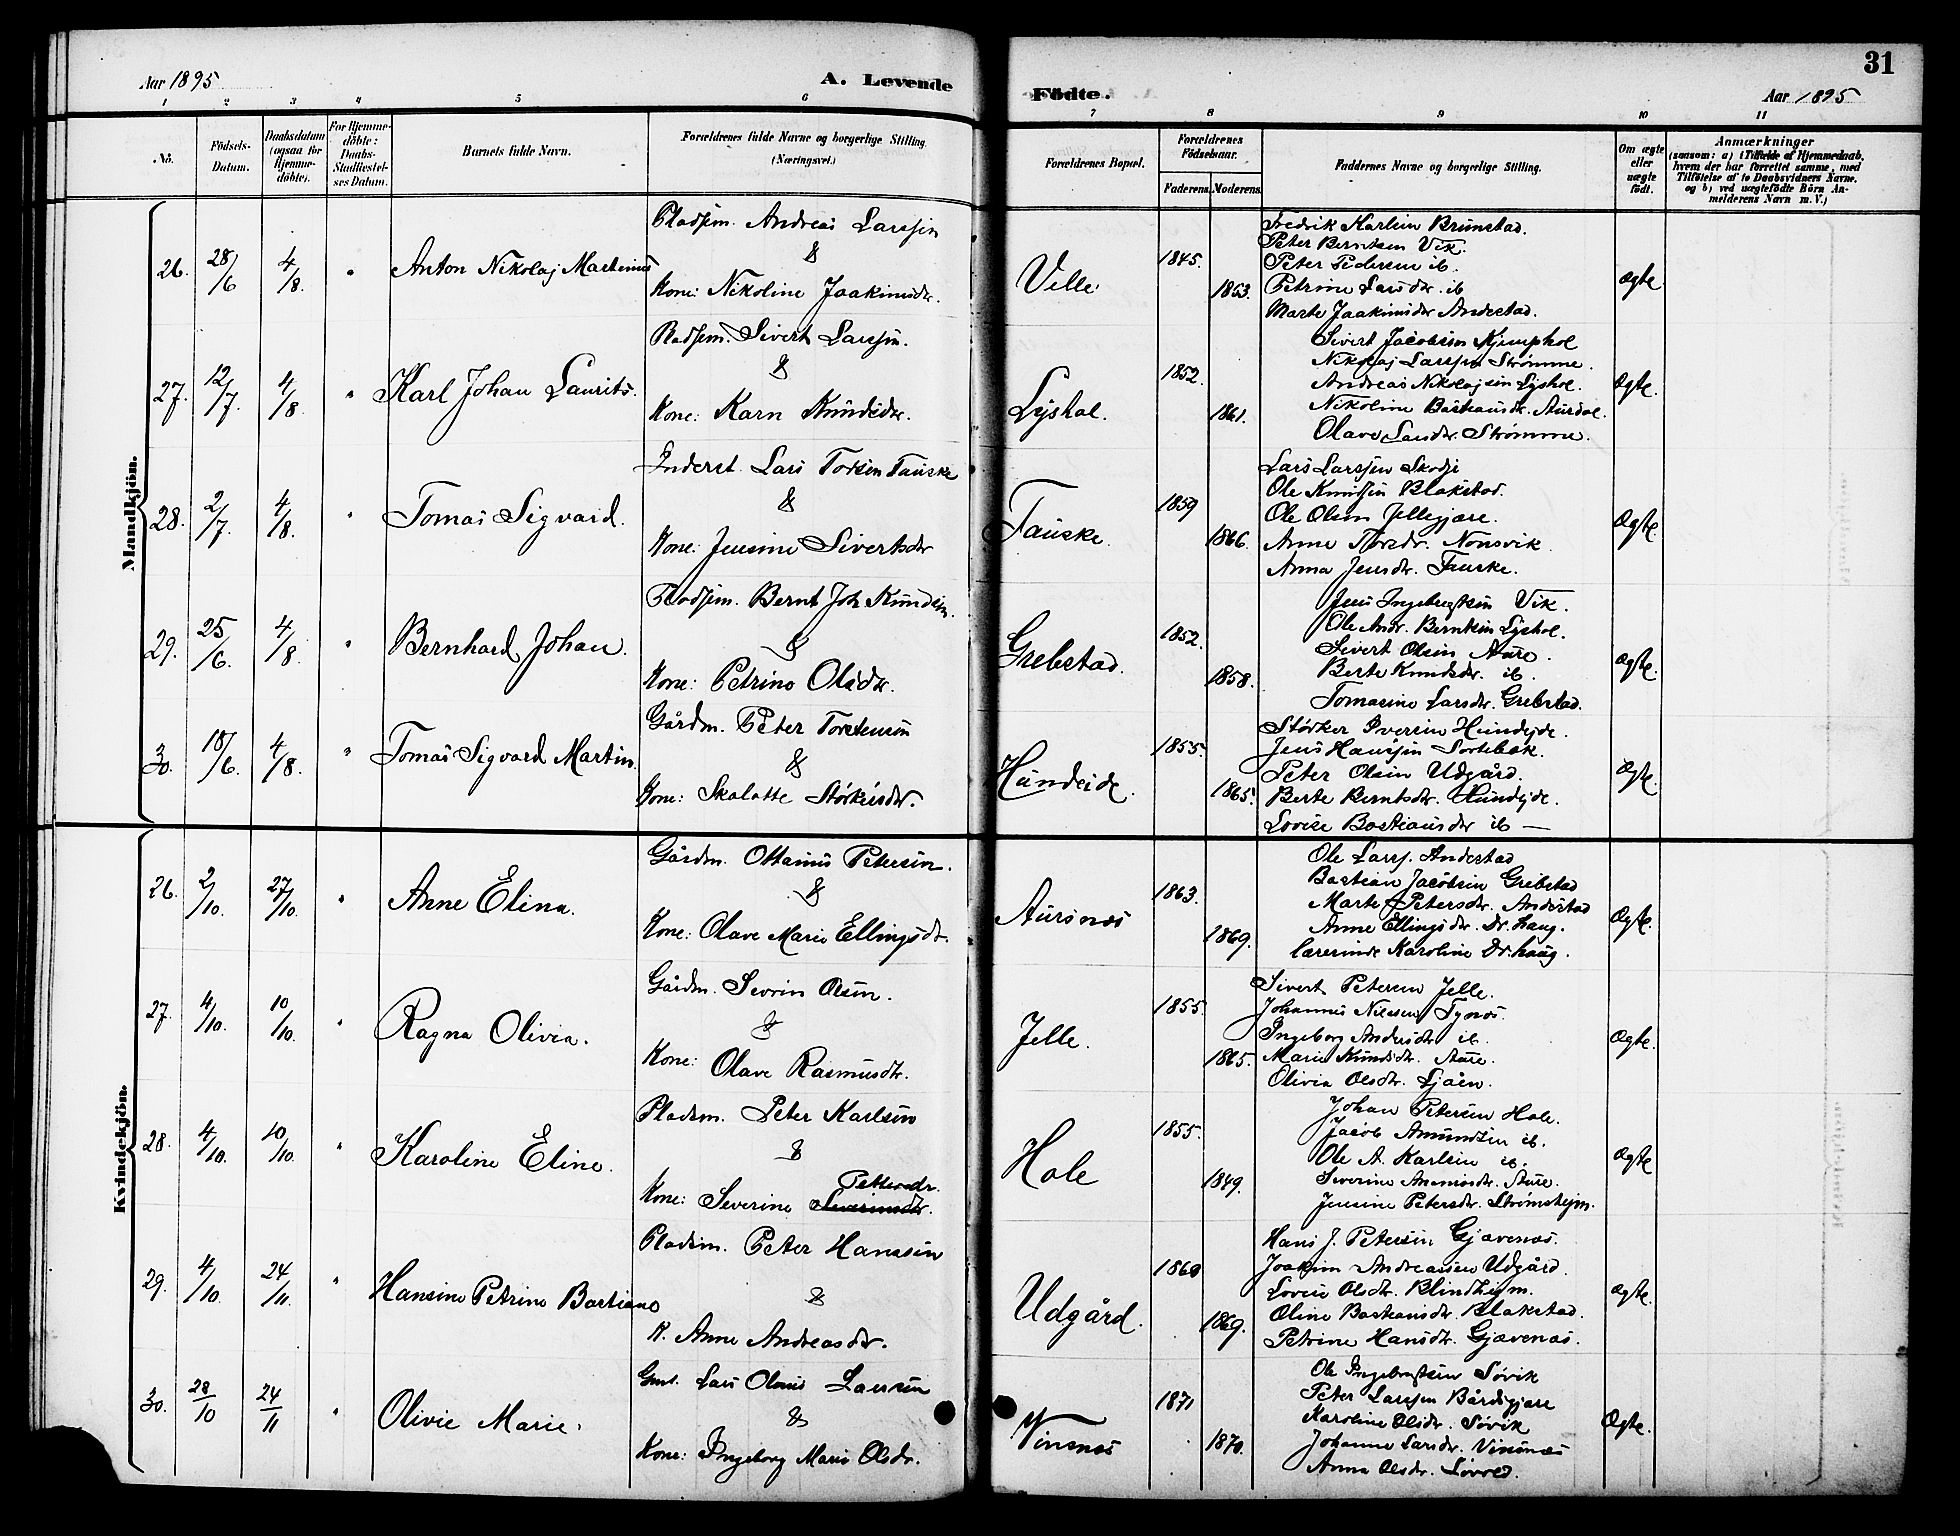 31
Aar 1895
A. Levende
Fødte.
Aar 1895
1 2 3 4 5 6 7 8 9 10 11
No.
Födsels-Datum.
Daabsdatum (ogsaa for Hjemme-döbte).
For Hjemme-döbte: Daabs-Stadfæstelses Datum.
Barnets fulde Navn.
Forældrenes fulde Navne og borgerlige Stilling (Næringsvei.)
Forældrenes Bopæl.
Forældrenes Födselsaar.
Faderens. Moderens.
Faddernes Navne og borgerlige Stilling.
Om ægte eller uægte födt.
Anmærkninger
(saasom: a) i Tilfælde af Hjemmedaab, hvem der har forrettet samme, med Tilföielse af to Daabsvidners Navne, og b) ved uægtefödte Börn Anmelderens Navn m. V.)
Mandkjön.
26. 28/6 4/8. " Anton Nikolaj Martinus
Pladsm. Andreas Larssen
&
Kone: Nikoline Joakimsdr.
Velle.
1845.
1853.
Fredrik Karlsen Brunstad.
Peter Berntsen Vik.
Peter Pedersen ib.
Petrine Larsdr. ib
Marte Joakimsdr Andestad.
Ægte
27. 12/7. 4/8 " Karl Johan Laurits.
Pladsm. Sivert Larssen.
&
Kone: Karn Knudsdr.
Lyshol.
1852.
1861.
Sivert Jacobsen Kjemphol
Nikolaj Larssen Strømme.
Andreas Nikolajsen Lyshol.
Nikoline Bastiansdr. Aurdal.
Olave Larsdr. Strømme.
Ægte.
28. 2/7. 4/8. " Tomas Sigvard.
Inderst. Lars Torsen Fauske
&
Kone: Jensine Sivertsdr
Fauske.
1859
1866.
Lars Larssen Skodje
Ole Knudsen Blakstad.
Ole Olsen Jellegjære.
Anne Toresdr. Nonsvik.
Anna Jensdr. Fauske.
Ægte.
29. 25/6. 4/8 " Bernhard Johan.
Pladsm. Bernt Joh Knudsen.
&
Kone: Petrine Olsdr.
Grebstad.
1852.
1858.
Jens Ingebregtsen Vik.
Ole Andr. Berntsen Lyshol.
Sivert Olsen Aure.
Berte Knudsdr. ib.
Tomasine Larsdr. Grebstad.
Ægte.
30. 18/6. 4/8. " Tomas Sigvard Martin.
Gårdm. Peter Torstensen
&
Kone: Skalotte Størkersdr.
Hundeide.
1855.
1865.
Størker Iversen Hundejde.
Jens Hanssen Sortebæk.
Peter Olsen Udgård.
Berte Berntsdr. Hundejde.
Lovise Bastiansdr ib —
Ægte.
Kvindekjön.
26. 2/10. 27/10. " Anne Elina.
Gårdm. Ottanius Petersen.
&
Kone: Olave Marie Ellingsdr.
Aursnæs
1863.
1869.
Ole Larss. Andestad
Bastian Jacobsen Grebstad
Marte Petersdr. Andestad
Anne Ellingsdr. Dr. haug.
Lærerinde Karoline Dr. haug.
Ægte.
27. 4/10. 10/10. " Ragna Olivia.
Gårdm. Sevrin Olsen.
&
Kone: Olave Rasmusdr.
Jelle.
1855.
1865.
Sivert Petersen Jelle.
Johannes Nilssen Tynes.
Ingeborg Andersdr ib.
Marie Knudsdr. Aure.
Olivia Olsdr. Sjåen.
Ægte.
28. 4/10. 10/10. " Karoline Eline.
Pladsm. Peter Karlsen
&
Petersdr.
Kone: Severine Severinsdr.
Hole
1855.
1849.
Johan Petersen Hole.
Jacob Amundsen ib.
Ole A. Karlsen ib.
Severine Ananiasdr. Aure.
Jensine Petersdr. Strømshejm.
Ægte
29. 4/10. 24/11. " Hansine Petrine Bastiane
Pladsm. Peter Hanssen
&
K. Anne Andreasdr.
Udgård.
1860
1869.
Hans J. Petersen Gjævenæs.
Joakim Andreassen Udgård.
Lovise Olsdr. Blindhejm.
Oline Bastiansdr. Blakstad.
Petrine Hansdr. Gjævenæs.
Ægte.
30. 28/10 24/11 " Olivie Marie.
Gmd. Lars Olonis Larssen
&
Kone: Ingeborg Marie Olsdr.
Vinsnæs
1871
1870.
Ole Ingebregtsen Søvik
Peter Larssen Bårdsgjære
Karoline Olsdr. Søvik
Johanne Larsdr. Vinsnæs
Anna Olsdr.
Ægte.